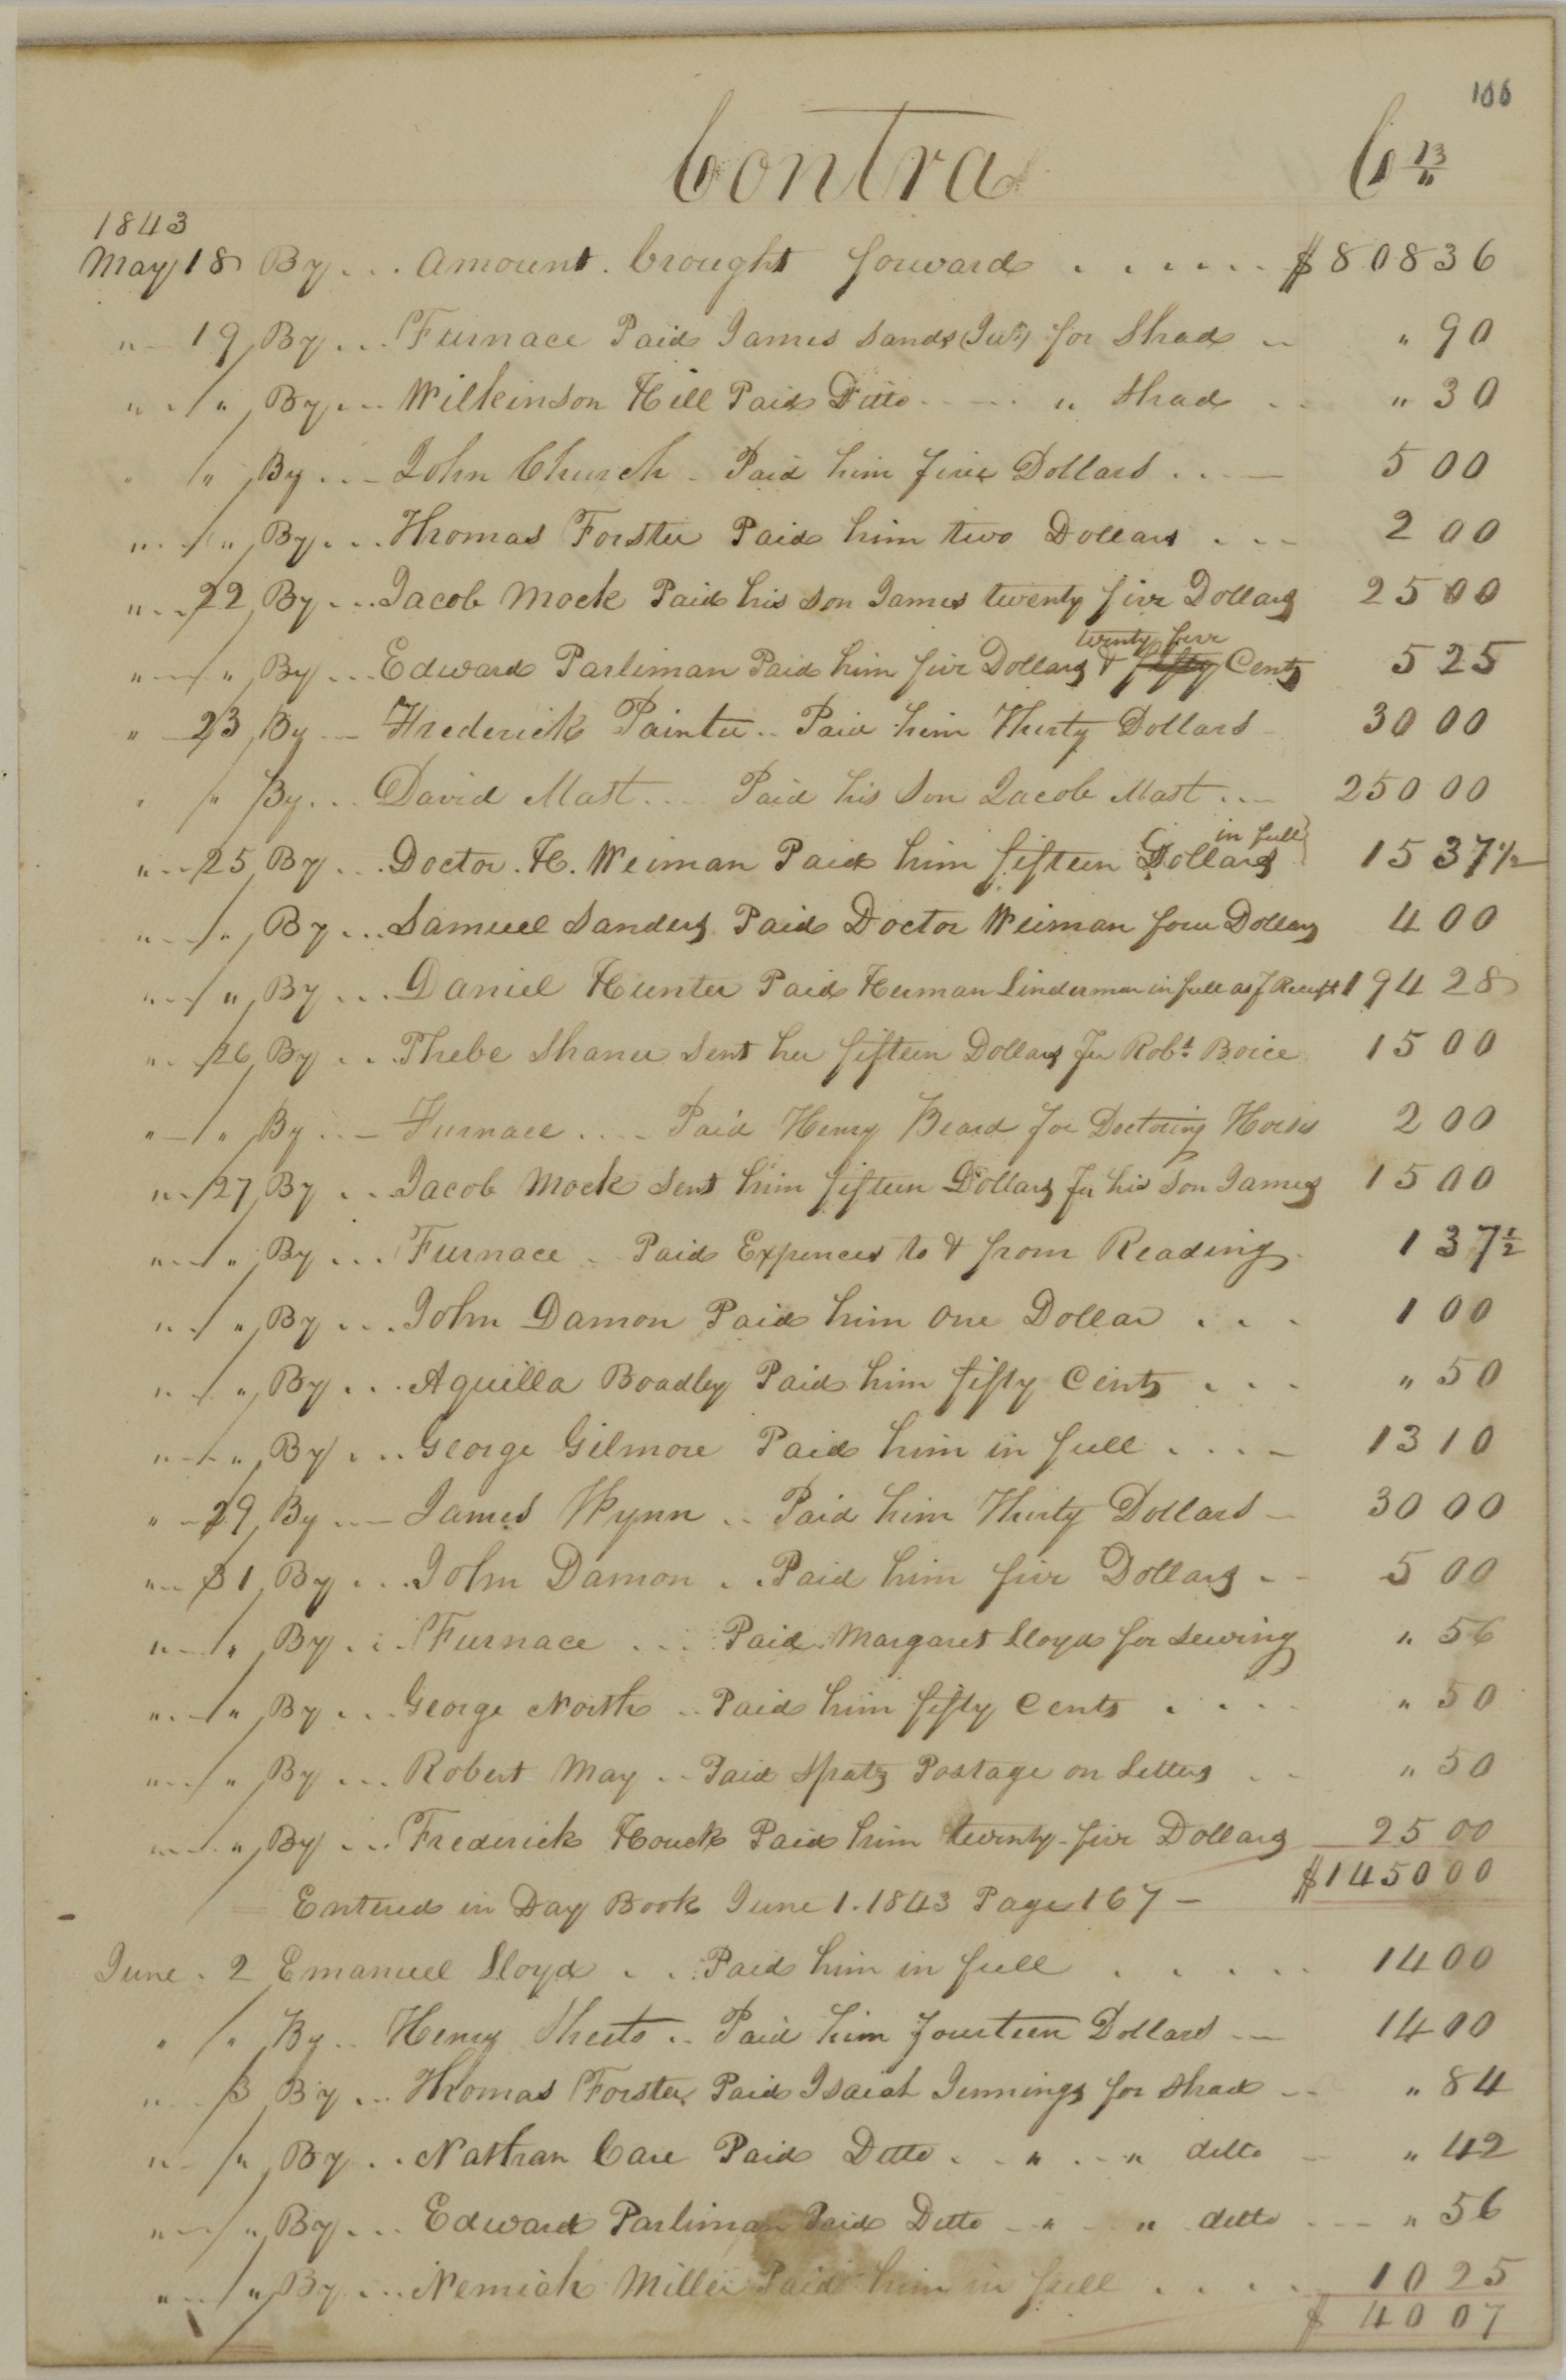 106
Contra Cr
1843
May 18 By ... Amount brought forward ...... $808 36
" 19 By ... Furnace Paid James Sands (Jur) for Shad .. " 90
" " By ... Wilkinson Hill Paid Ditto .... " Shad .. " 30
" " By ... John Church - Paid him five Dollars ... 5 00
" " By ... Thomas Forster Paid him two Dollars ... 2 00
" 22 By ... Jacob Mock Paid his Son James twenty five Dollars 25 00
twenty five
" " By ... Edward Parliman Paid him five Dollars & fifty Cents 5 25
" 23 By ... Frederick Painter .. Paid him Thirty Dollars 30 00
" " By ... David Mast .... Paid his Son Jacob Mast ... 250 00
in full
" 25 By ... Doctor H. Weiman Paid him fifteen Dollars 15 37 1/2
" " By ... Samuel Sanders Paid Doctor Weiman four Dollars 4 00
" " By ... Daniel Hunter Paid Herman Linderman in full as per Receipt 194 28
" 26 By ... Phebe Shaner Sent her fifteen Dollars Per Robt Boice 15 00
" " By ... Furnace .... Paid Henry Beard for Doctoring Horses 2 00
" 27 By ... Jacob Mock Sent him fifteen Dollars Per his Son James 15 00
" " By ... Furnace .. Paid Expences to & from Reading 1 37 1/2
" " By ... John Damon Paid him One Dollar ... 1 00
" " By ... Aquilla Boadley Paid him fifty Cents ... " 50
" " By ... George Gilmore Paid him in full .... 13 10
" 29 By ... James Wynn .. Paid him Thirty Dollars - 30 00
" 31 By ... John Damon .. Paid him five Dollars .. 5 00
" " By ... Furnace ... Paid Margaret Lloyd for Sewing " 56
" " By ... George North .. Paid him fifty Cents .... " 50
" " By ... Robert May .. Paid Spatz Postage on Letters .. " 50
" " By ... Frederick Houck Paid him twenty-five Dollars 25 00
$1450 00
Entered in Day Book June 1. 1843 Page 167 -
June . 2 Emanuel Lloyd .. Paid him in full ..... 14 00
" " By .. Henry Sheets .. Paid him fourteen Dollars .. 14 00
" 3 By ... Thomas Forster Paid Isaiah Jennings for Shad .. " 84
" " By .. Nathan Care Paid Ditto .. " .. " ditto " 42
" " By ... Edward Parliman Paid Ditto .. " " ditto ... " 56
" " By ... Nemiah Miller Paid him in full .... 10 25
$ 40 07